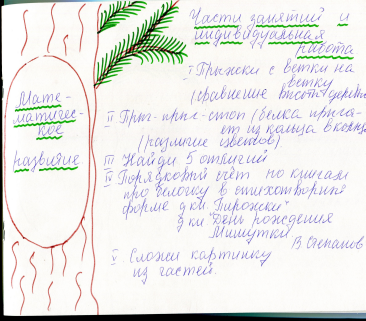 Мате-
матичес-
кое
развитие
Части занятий и
индивидуальная
работа
I Прыжки с ветки на
ветку
(сравнение высоты деревьев)
II Прыг-прыг-стоп (белка прыга-
ет из кольца в кольцо)
(различие цветов)
III Найди 5 отличий
IV Порядковый счёт по книгам
про белочку в стихотворной
форме д.ки. "Пирожки"
д ки "День рождения
Мишутки"
В Степанов
V Сложи картинку
из частей.